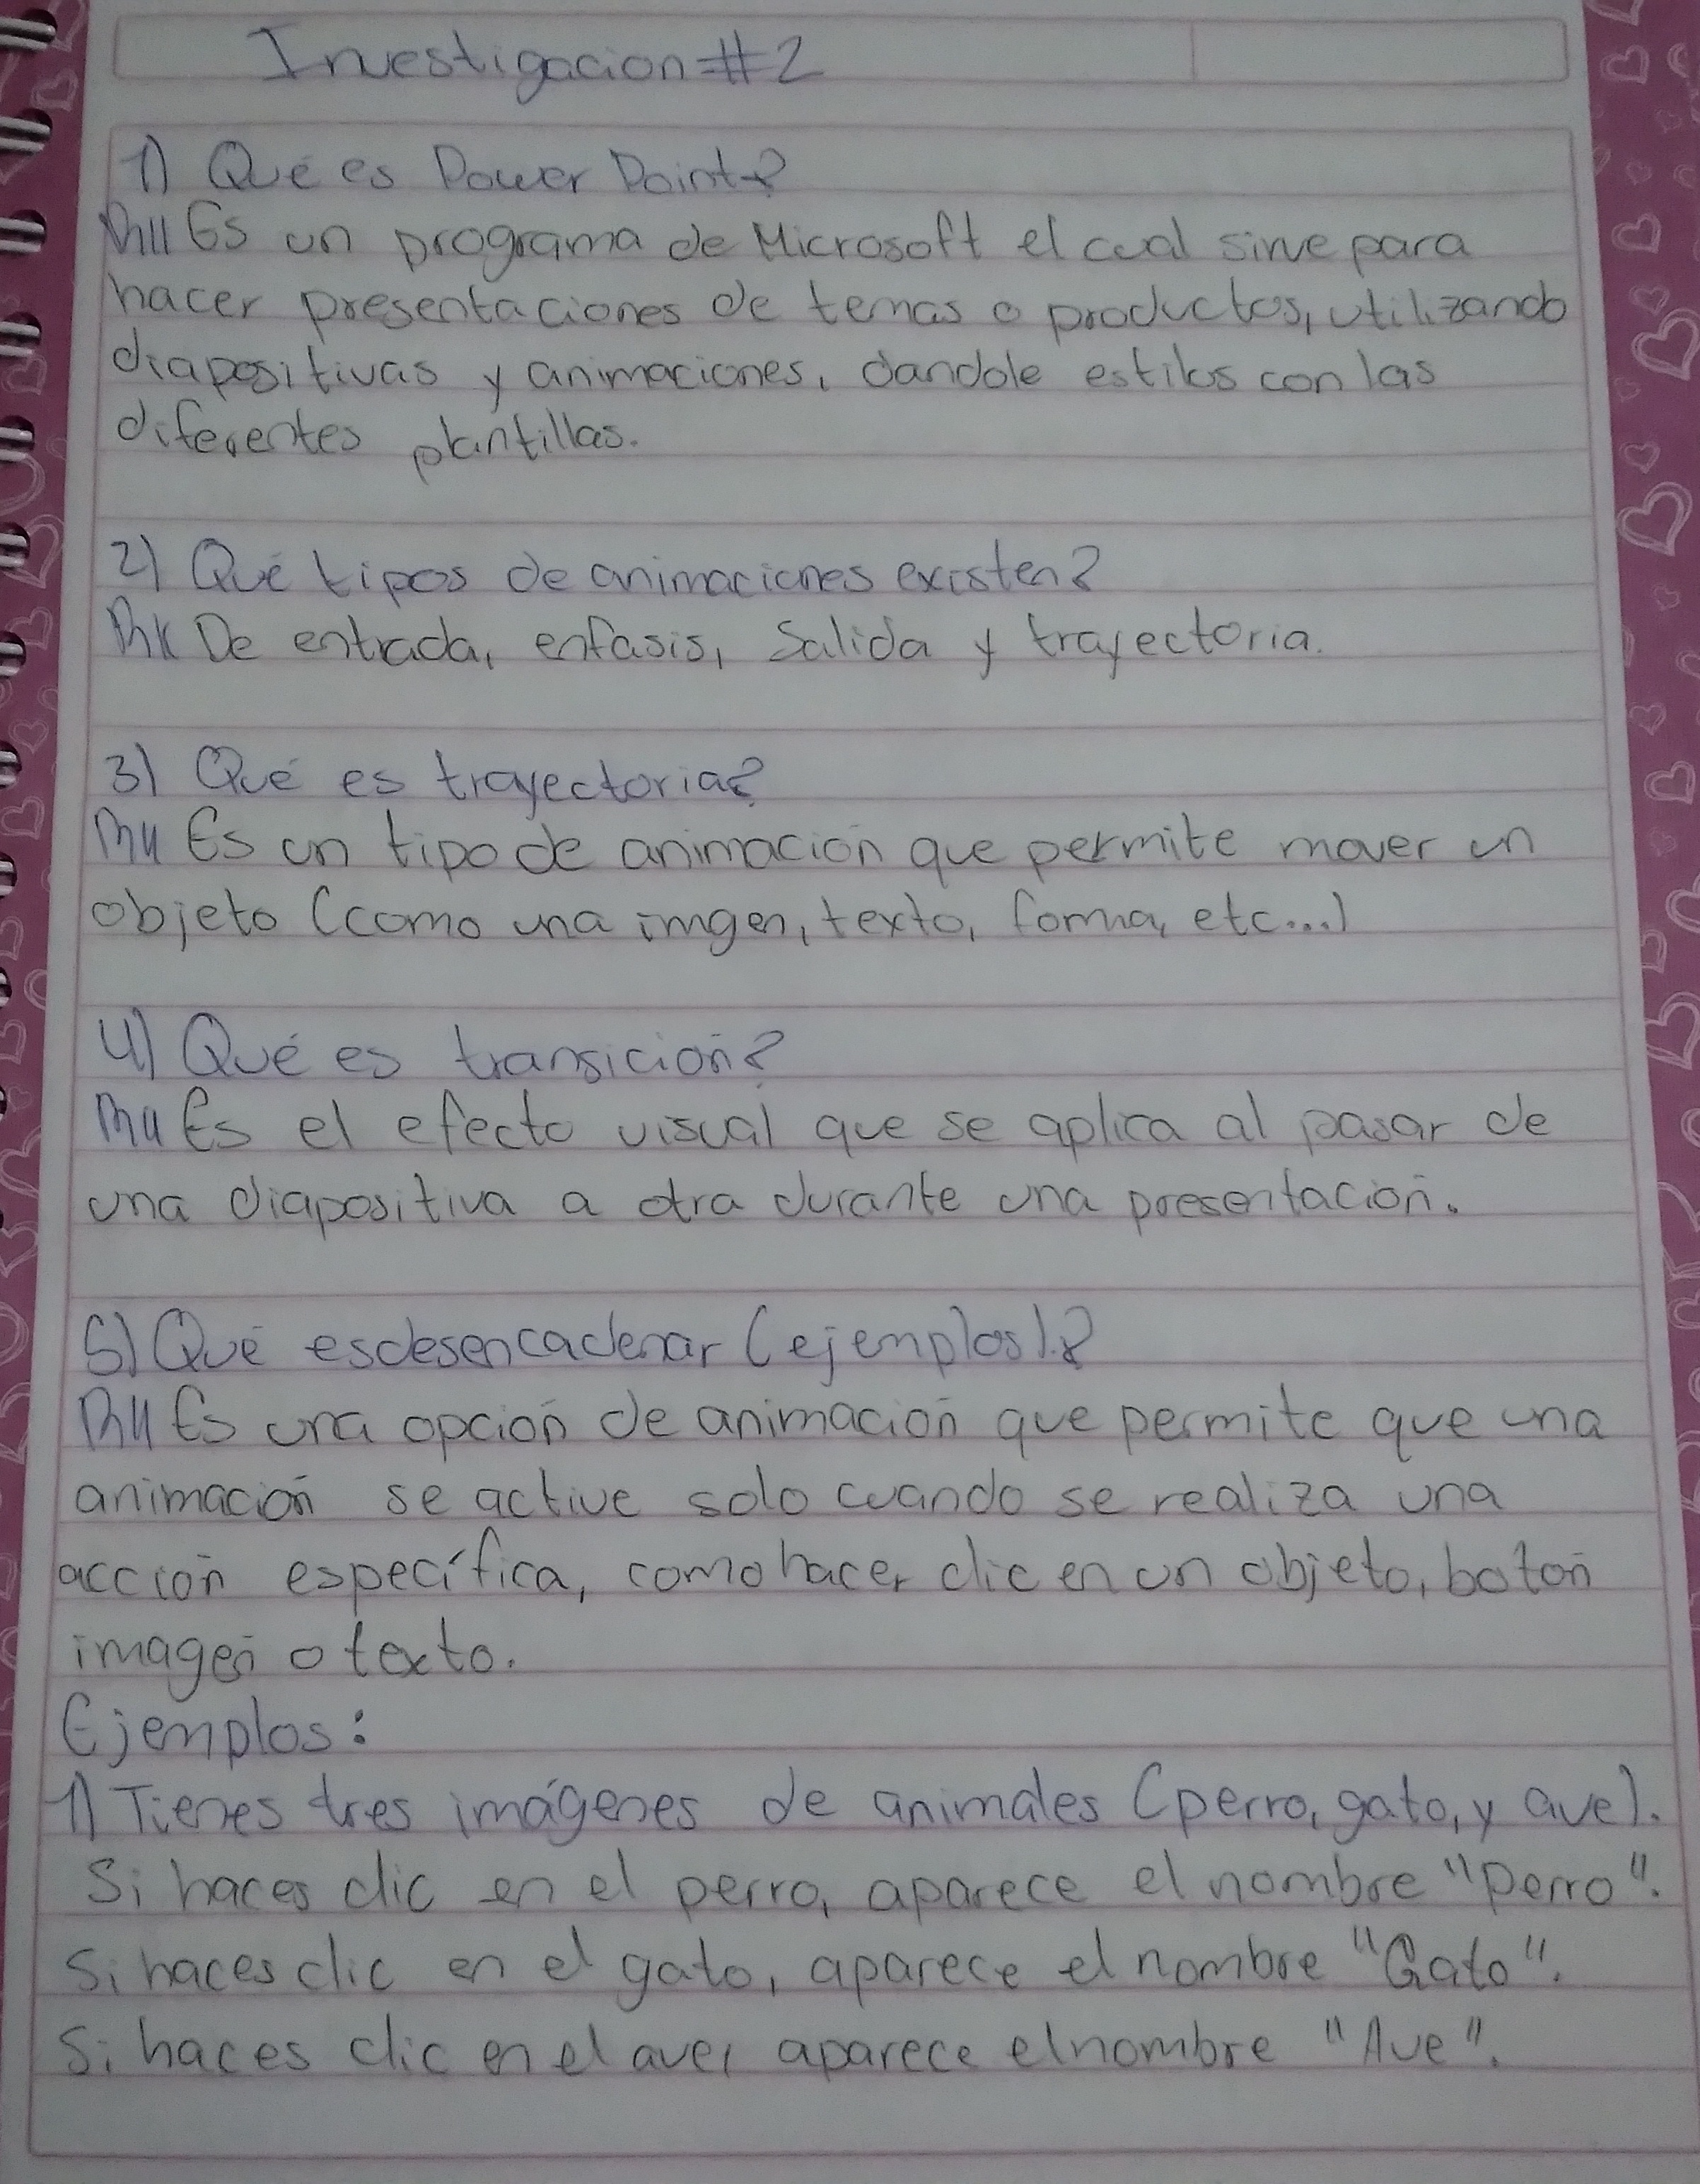 Investigacion #2
1) Qué es Power Point?
R// Es un programa de Microsoft el cual sirve para
hacer presentaciones de temas o productos, utilizando
diapositivas y animaciones, dandole estilos con las
diferentes plantillas.
2) Qué tipos de animaciones existen?
R// De entrada, enfasis, Salida y trayectoria.
3) Qué es trayectoria?
R// Es un tipo de animación que permite mover un
objeto (como una imgen, texto, forma, etc...)
4) Qué es transición?
R// Es el efecto visual que se aplica al pasar de
una diapositiva a otra durante una presentación.
5) Qué es desencadenar (ejemplos).?
R// Es una opción de animación que permite que una
animación se active solo cuando se realiza una
acción específica, como hacer clic en un objeto, botón
imagen o texto.
Ejemplos:
1) Tienes tres imágenes de animales (perro, gato, y ave).
Si haces clic en el perro, aparece el nombre "Perro".
Si haces clic en el gato, aparece el nombre "Gato".
Si haces clic en el ave, aparece el nombre "Ave".